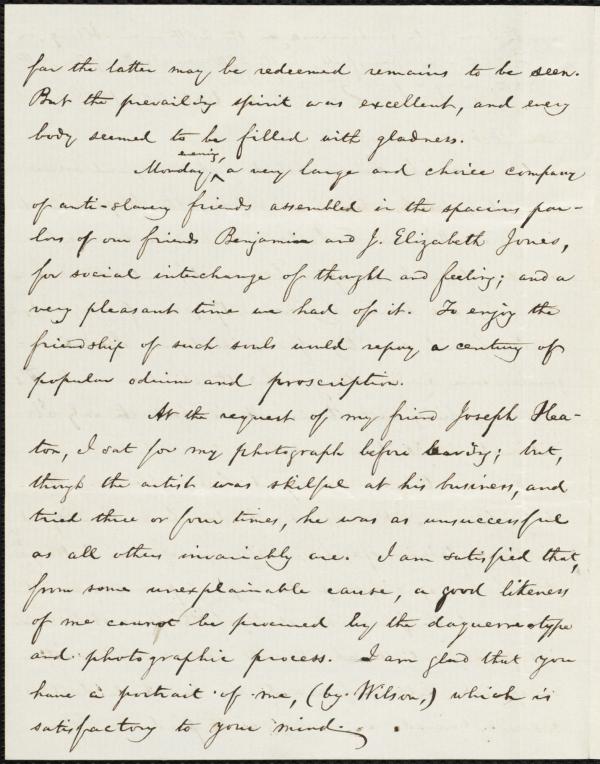 far the latter may be redeemed remains to be seen.
But the prevailing spirit was excellent, and every
body seemed to be filled with gladness.
evening,
Monday ‸ a very large and choice company
of anti-slavery friends assembled in the spacious par-
lors of our friends Benjamin and J. Elizabeth Jones,
for social interchange of thought and feeling; and a
very pleasant time we had of it. To enjoy the
friendship of such souls would repay a century of
popular odium and proscription.
At the request of my friend Joseph Hea-
ton, I sat for my photograph before leaving; but,
though the artist was skilful at his business, and
tried three or four times, he was as unsuccessful
as all others invariably are. I am satisfied that,
from some unexplainable cause, a good likeness
of me cannot be procured by the daguerreotype
and photographic process. I am glad that you
have a portrait of me, (by Wilson,) which is
satisfactory to your mind.